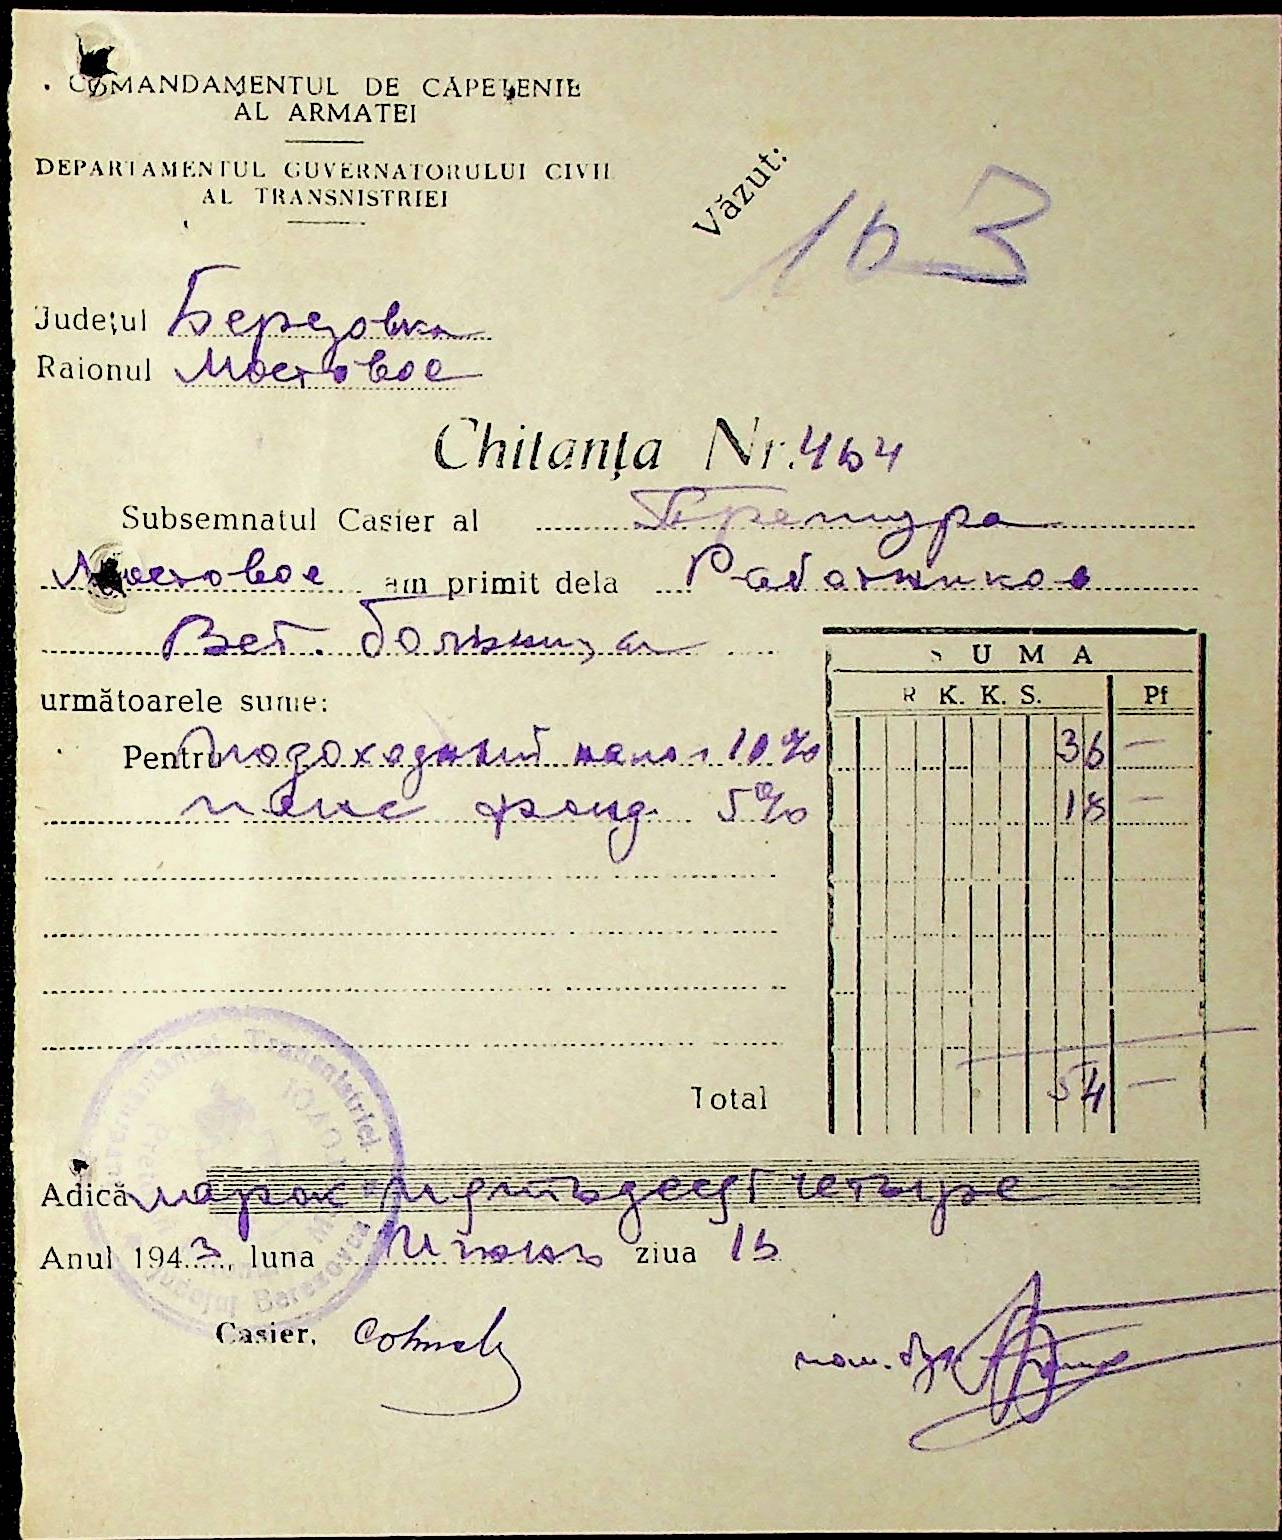 COMANDAMENTUL DE CĂPETENIE
AL ARMATEI
DEPARTAMENTUL GUVERNATORULUI CIVIL
AL TRANSNISTRIEI
Văzut:
163
Județul Березовка
Raionul Мостовое
Chitanța Nr. 464
Subsemnatul Casier al Претура
Мостовое am primit dela Работников
Вет. больница
SUMA
R.K.K.S. Pf
următoarele sume:
Pentru подоходный налог 10% 36 —
пенс фонд 5% 18 —
Total 54 —
Adică марок пятьдесят четыре —
Anul 1943, luna Июль ziua 16
Casier,
пом. бух
Guvernământul Transnistriei
Județul Berezovca